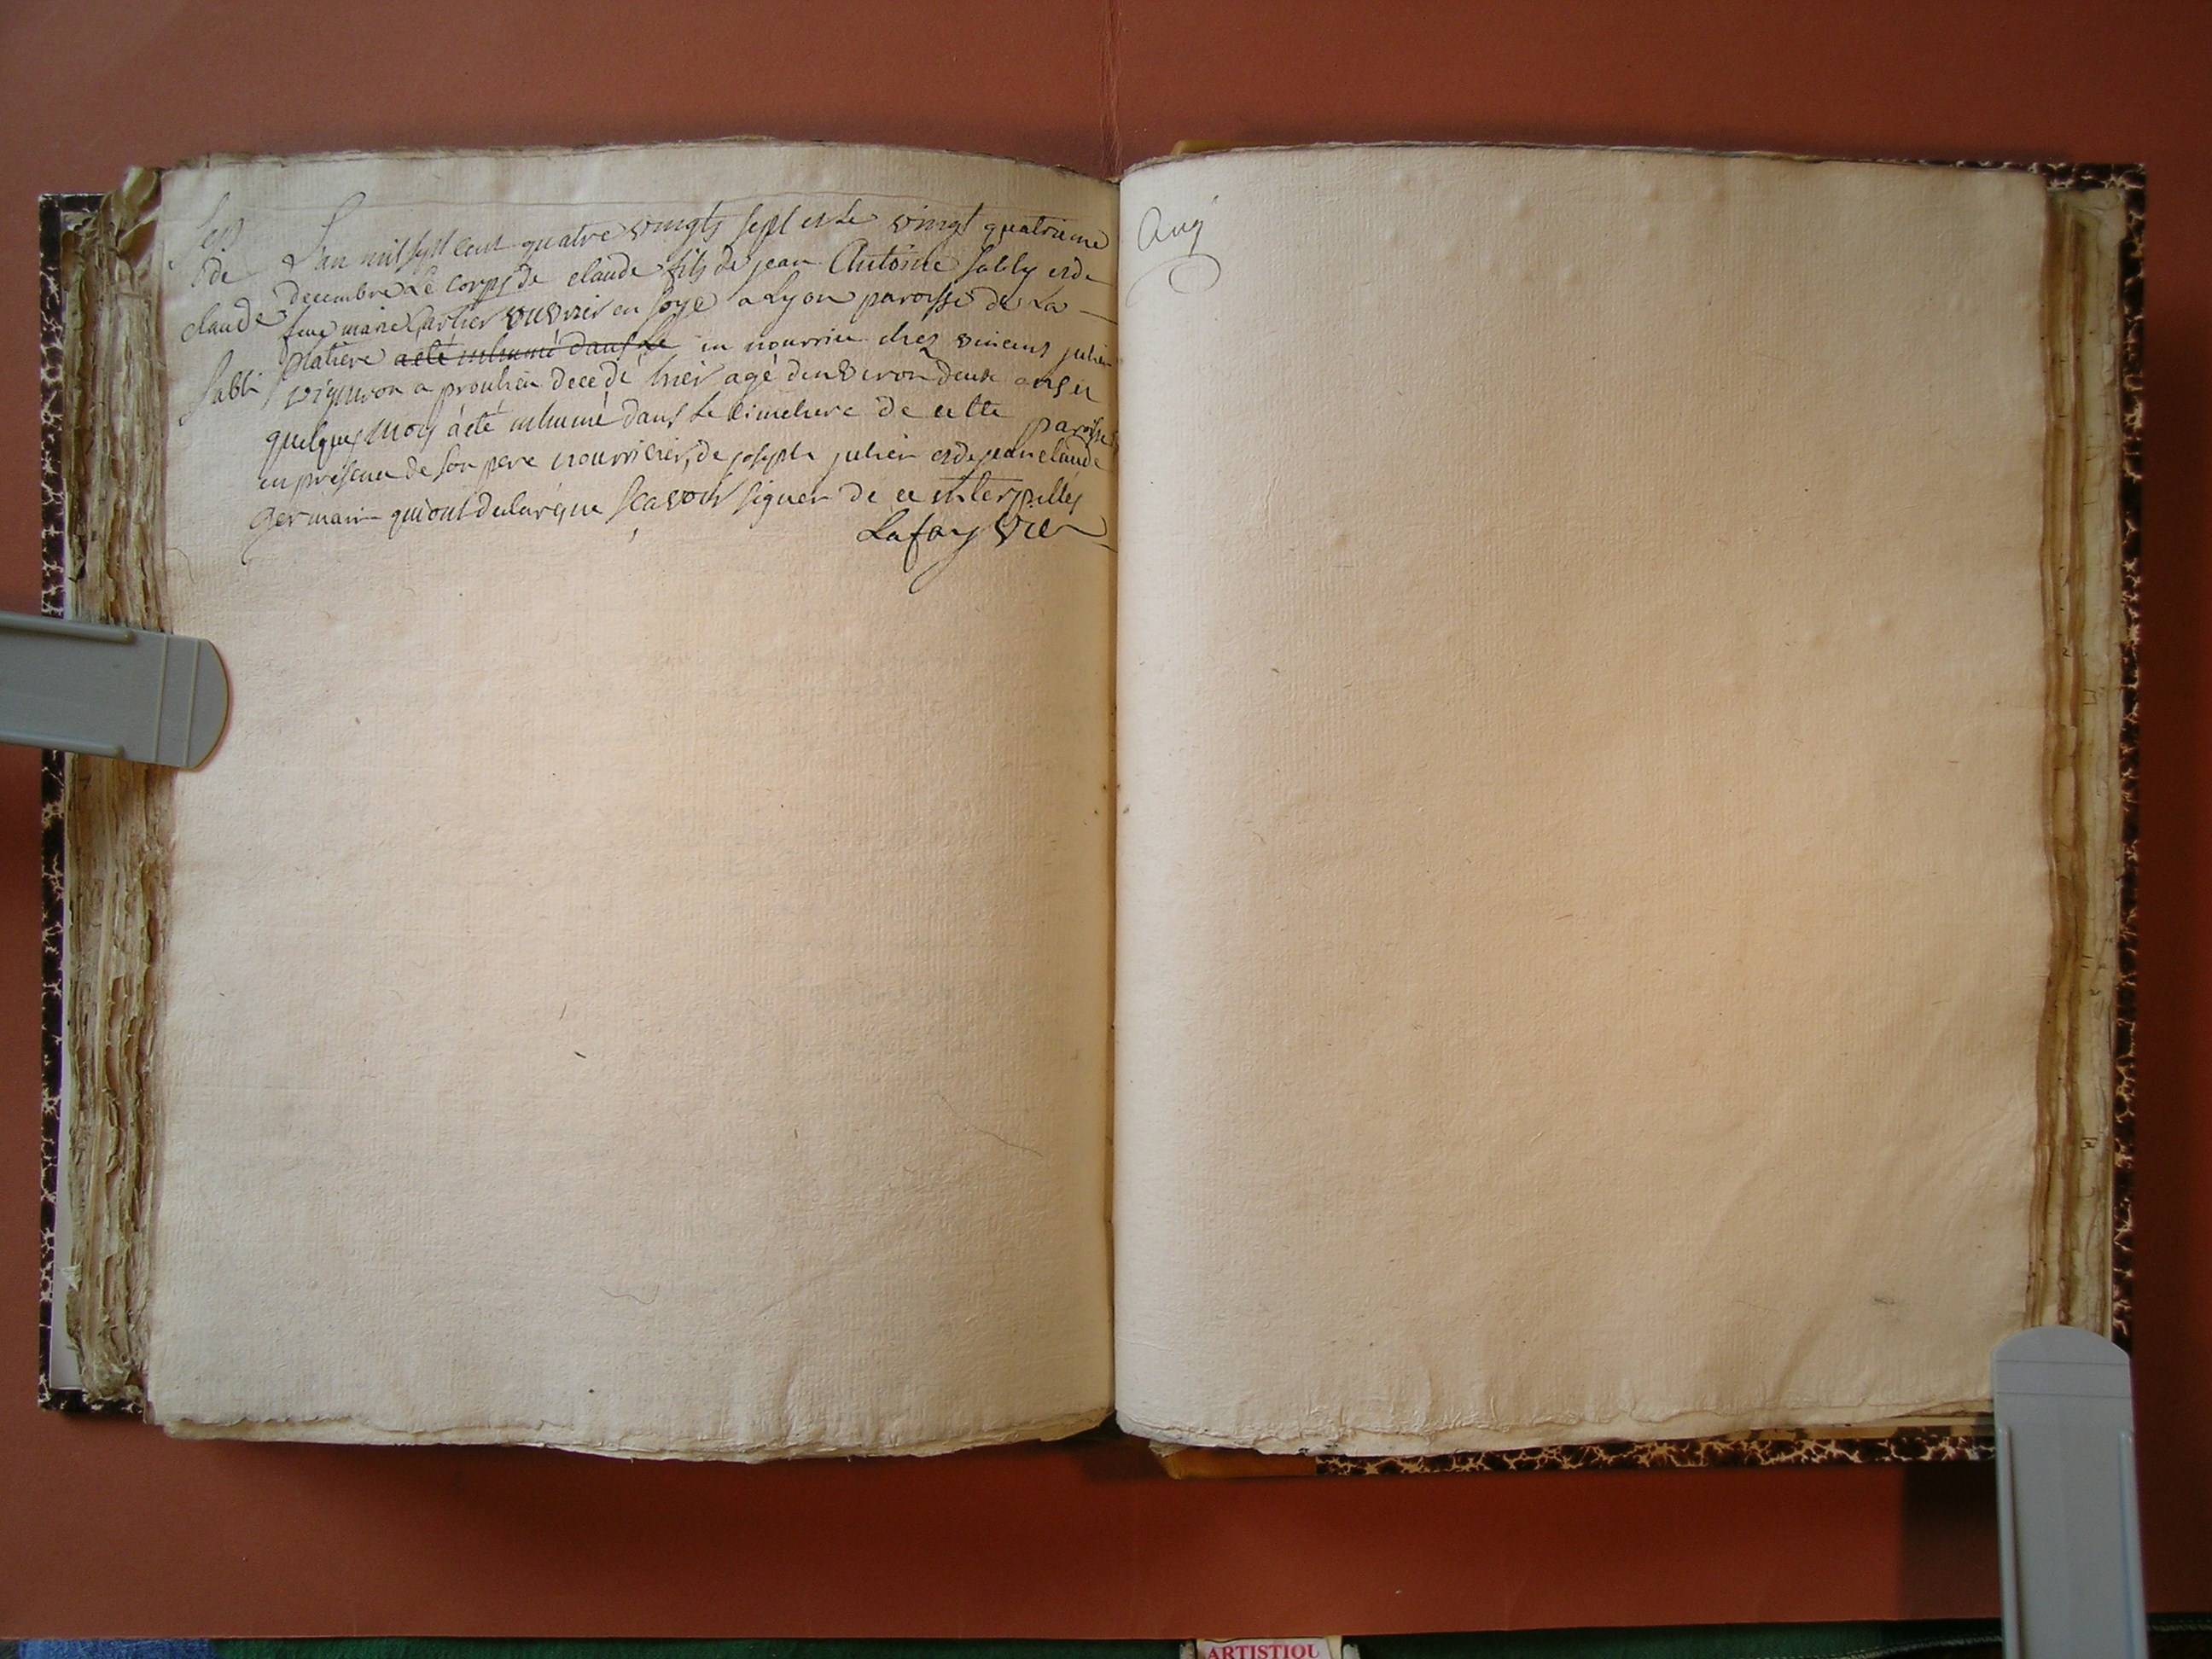 Sep
de
claude
Sabli
L'an mil sept cent quatre vingts sept et le vingt quatrieme
decembre Le corps de claude fils de jean Antoine Sably et de
feue marie Cartier ouvrier en soye a Lyon paroisse de La
Platiere a eté inhumé dans Le en nourrice chez vincent julien
vigneron a proulieu decedé hier agé d'environ deux ans et
quelques mois a eté inhumé dans Le Cimetiere de cette paroisse
en présence de son pere nourricier, de joseph julien et de jean claude
germain qui ont declaré ne scavoir signer de ce interpellés
Lafay Vic